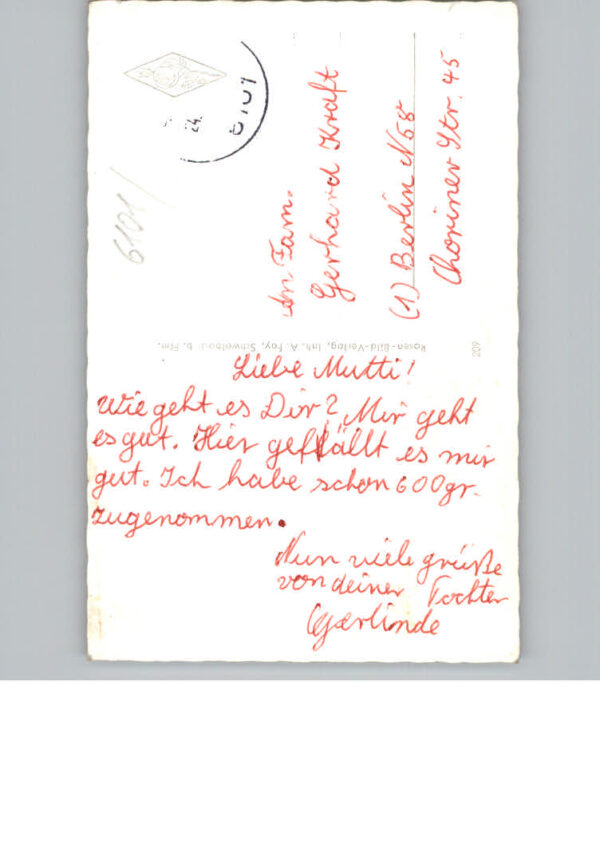 Liebe Mutti!
Wie geht es Dir? Mir geht
es gut. Hier gefällt es mir
gut. Ich habe schon 600gr.
zugenommen.
Nun viele grüße
von deiner Tochter
Gerlinde
An Fam.
Gerhard Kraft
(1) Berlin N58
Choriner Str. 45
Rosen-Bild-Verlag, Inh. A. Foy, Schwelbach b. Ffm.
209
6101/
24.
6101